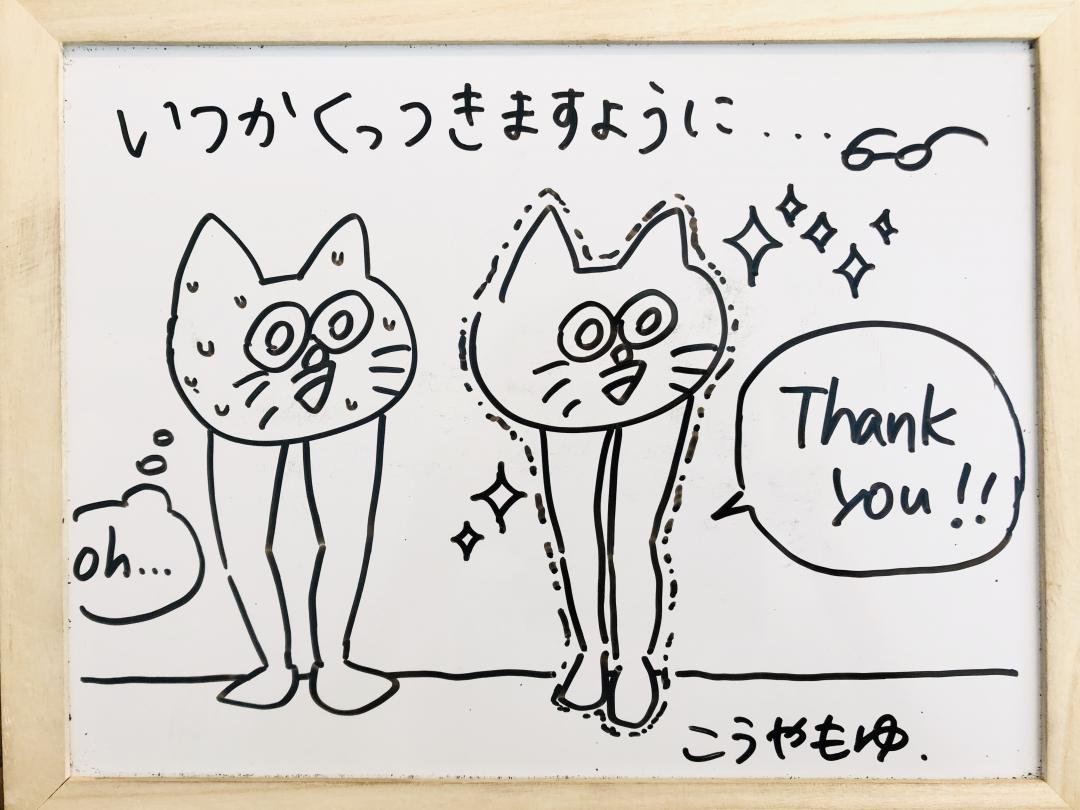 いつかくっつきますように...
oh...
Thank
you!!
こうやもゆ.